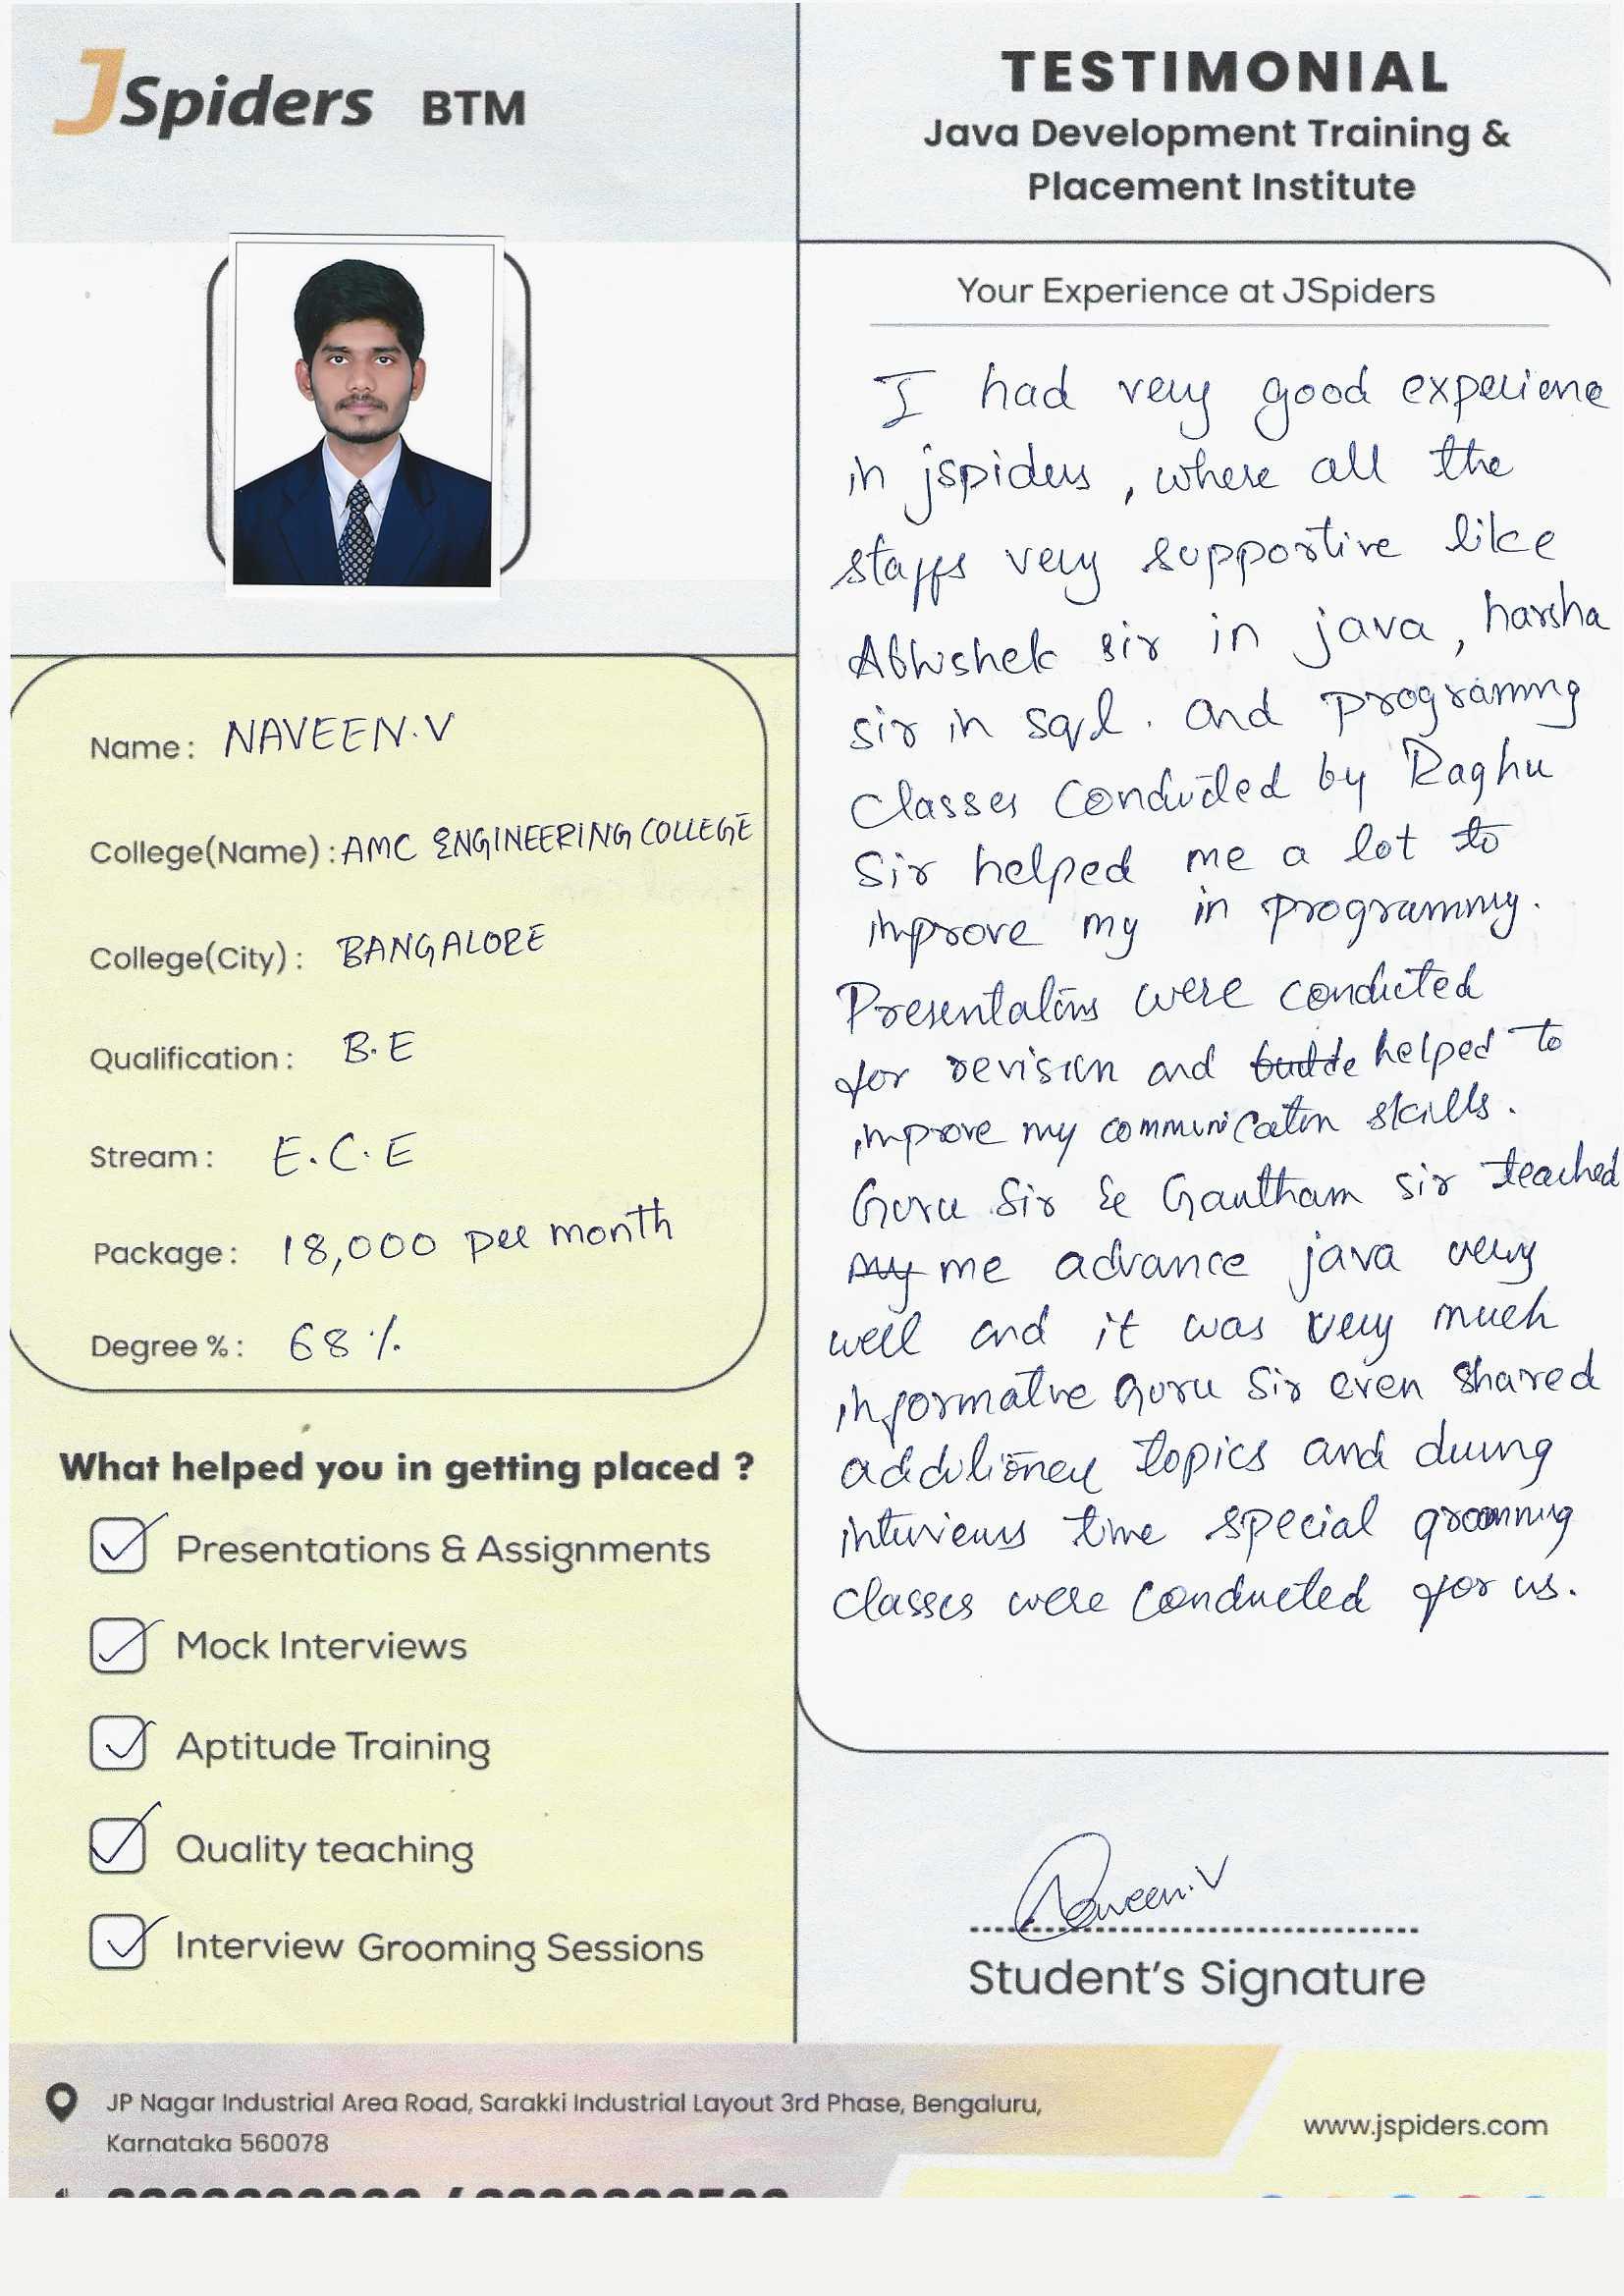 JSpiders BTM
TESTIMONIAL
Java Development Training &
Placement Institute
Name : NAVEEN.V
College(Name) : AMC ENGINEERING COLLEGE
College(City) : BANGALORE
Qualification : B.E
Stream : E.C.E
Package : 18,000 per month
Degree % : 68 %.
What helped you in getting placed ?
Presentations & Assignments
Mock Interviews
Aptitude Training
Quality teaching
Interview Grooming Sessions
Your Experience at JSpiders
I had very good experience
in jspiders , where all the
staffs very supportive like
Abhishek sir in java , harsha
sir in sql . and programming
Classes conducted by Raghu
Sir helped me a lot to
improve my in programming.
Presentations were conducted
for revision and helped to
improve my communication skills.
Guru Sir & Gautham sir teached
my me advance java very
well and it was very much
informative Guru Sir even shared
additional topics and during
interviews time special grooming
Classes were conducted for us.
Naveen.V
Student's Signature
JP Nagar Industrial Area Road, Sarakki Industrial Layout 3rd Phase, Bengaluru,
Karnataka 560078
www.jspiders.com